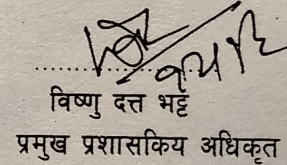 विष्णु दत्त भट्ट
प्रमुख प्रशासकिय अधिकृत